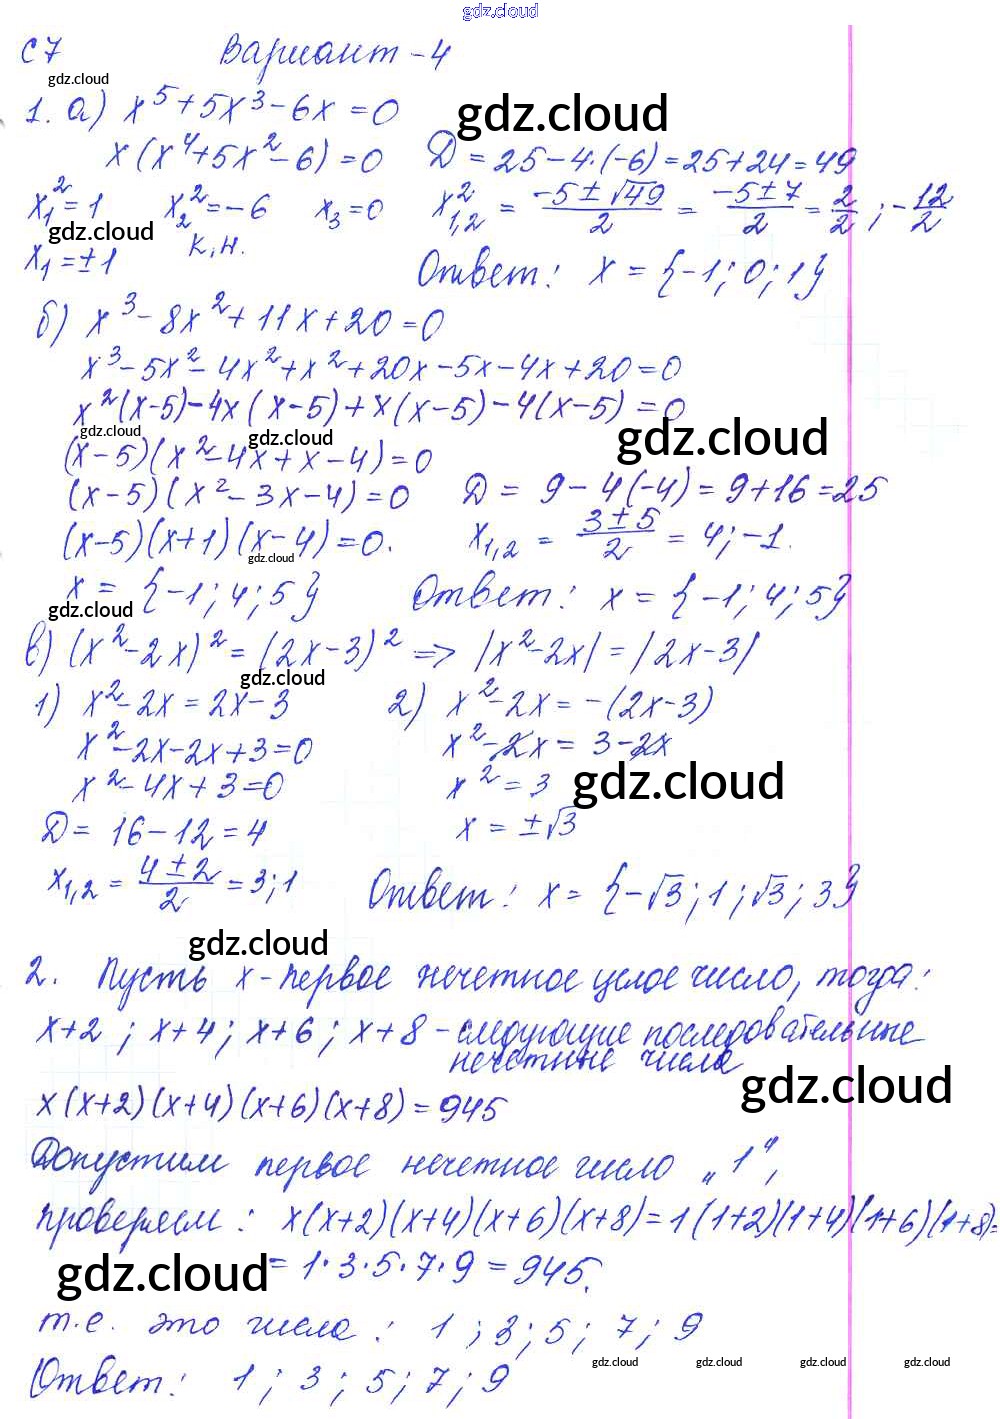 gdz.cloud
С7 Вариант-4
gdz.cloud
1. а) x⁵+5x³-6x=0
gdz.cloud
x(x⁴+5x²-6)=0 Д=25-4·(-6)=25+24=49
x₁²=1 x₂²=-6 x₃=0 x²₁,₂ = (-5±√49)/2 = (-5±7)/2 = 2/2; -12/2
gdz.cloud к.н.
x₁=±1 Ответ: x={-1;0;1}
б) x³-8x²+11x+20=0
x³-5x²-4x²+x²+20x-5x-4x+20=0
x²(x-5)-4x(x-5)+x(x-5)-4(x-5)=0
gdz.cloud gdz.cloud gdz.cloud
(x-5)(x²-4x+x-4)=0
(x-5)(x²-3x-4)=0 Д=9-4(-4)=9+16=25
(x-5)(x+1)(x-4)=0. x₁,₂ = (3±5)/2 = 4;-1.
gdz.cloud
x={-1;4;5} Ответ: x={-1;4;5}
gdz.cloud
в) (x²-2x)²=(2x-3)² => |x²-2x|=|2x-3|
gdz.cloud
1) x²-2x=2x-3 2) x²-2x=-(2x-3)
x²-2x-2x+3=0 x²-2x=3-2x
x²-4x+3=0 x²=3
gdz.cloud
Д=16-12=4 x=±√3
x₁,₂ = (4±2)/2 = 3;1 Ответ: x={-√3;1;√3;3}
gdz.cloud
2. Пусть x-первое нечетное целое число, тогда:
x+2; x+4; x+6; x+8 - следующие последовательные
нечетные числа
gdz.cloud
x(x+2)(x+4)(x+6)(x+8)=945
Допустим первое нечетное число „1“,
проверяем: x(x+2)(x+4)(x+6)(x+8)=1(1+2)(1+4)(1+6)(1+8)=
gdz.cloud
=1·3·5·7·9=945.
т.е. это числа: 1;3;5;7;9
gdz.cloud gdz.cloud gdz.cloud gdz.cloud
Ответ: 1;3;5;7;9